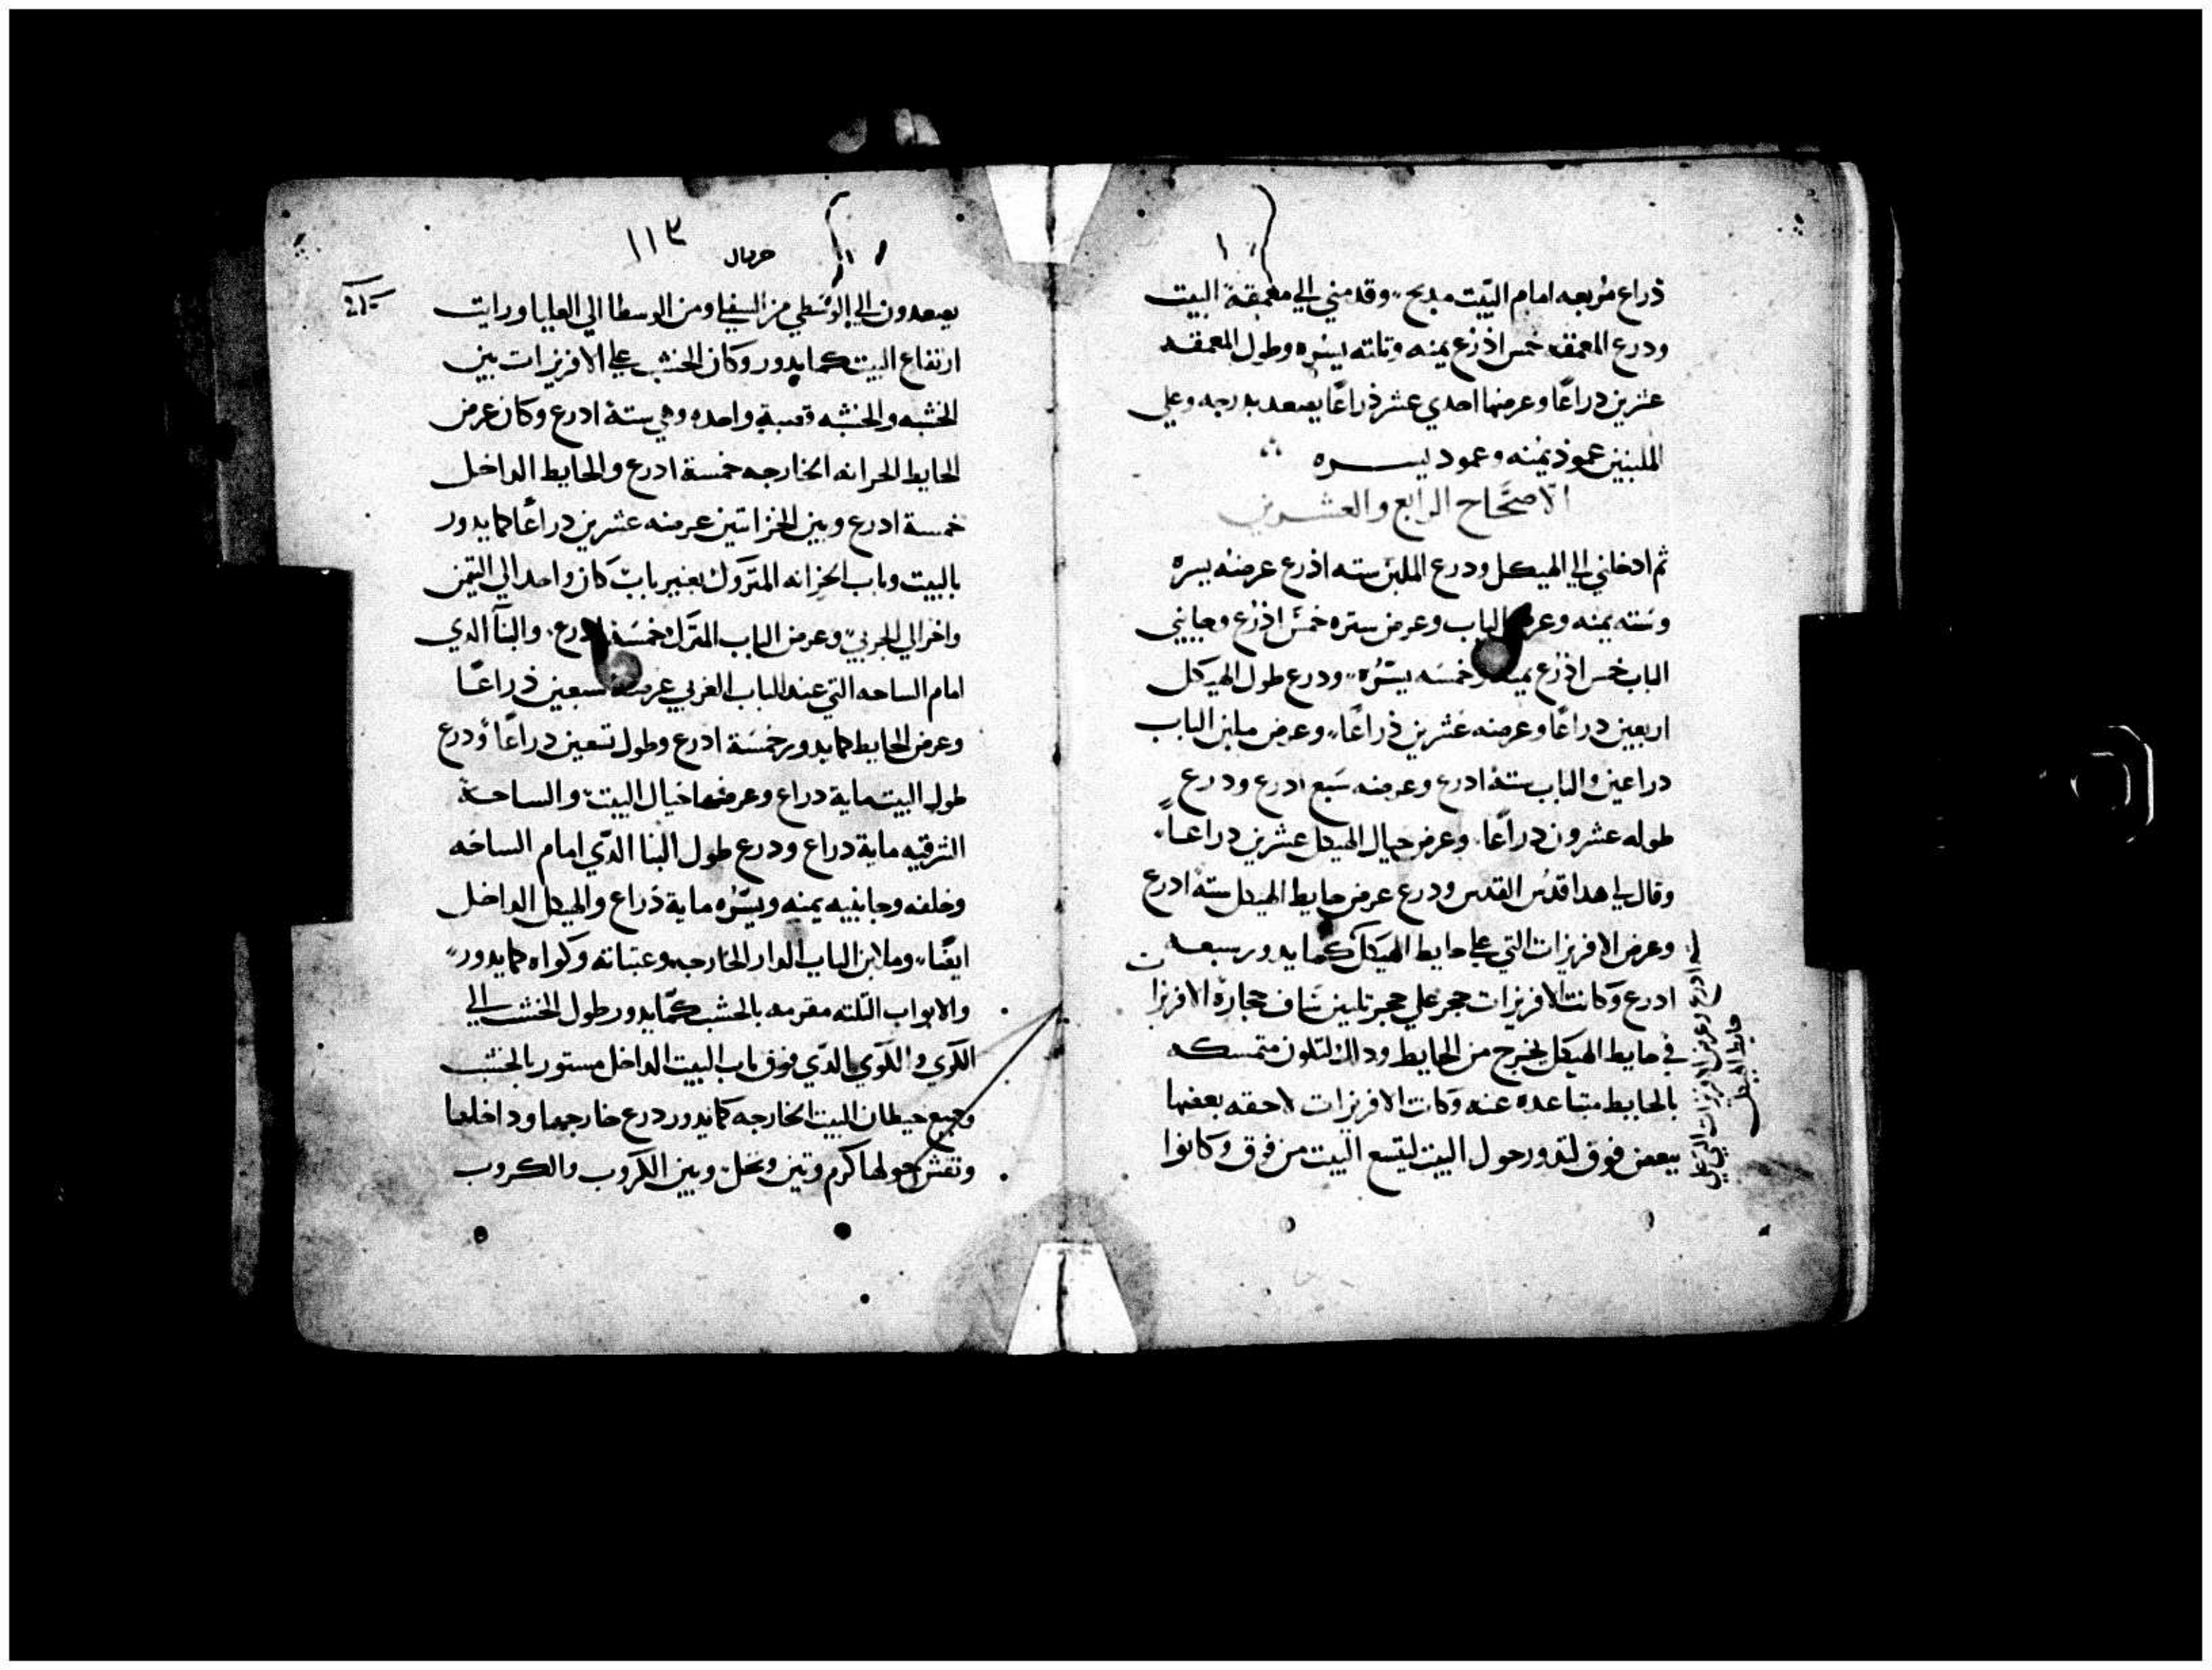 ذراع مربعه امام البيت مدبح وقدمني الي معمقة البيت
ودرع المعمقه خمس اذرع يمنه وتلته يسره وطول المعمقه
عشرين دراعًا وعرضها احدي عشر ذراعًا يصعد بدرجه وعلي
الملبنين عمود يمنه وعمود يسره
الاصحاح الرابع والعشرين
ثم ادخلني الي الهيكل ودرع الملبن سته اذرع عرضه يسره
وسته يمنه وعرض الباب وعرض ستره خمس اذرع وجانبي
الباب خمس اذرع يمنه وخمسه يسره ودرع طول الهيكل
اربعين دراعًا وعرضه عشرين ذراعًا وعرض ملبن الباب
دراعين والباب ستة ادرع وعرضه سبع ادرع ودرع
طوله عشرون دراعًا وعرض حيال الهيكل عشرين دراعاً
وقال لي هدا قدس القدس ودرع عرض حايط الهيكل ستة ادرع
وعرض الافريزات التي علي حايط الهيكل كما يدور سبعه
ادرع وكانت الافريزات حجر علي حجر تلين ساف حجارة الافريزات
في حايط الهيكل يخرج من الحايط ودالك لتكون متمسكه
بالحايط متباعده عنه وكانت الافريزات لاحقه بعضها
ببعض فوق لتدور حول البيت ليتسع البيت من فوق وكانوا
ادرع وعرض الافريزات التي علي
حايط الهيكل
١١٣
حزقيال
يصعدون الي الوسطي من السفلي ومن الوسطا الي العليا ورايت
ارتفاع البيت كما يدور وكان الخشب علي الافريزات بين
الخشبه والخشبه قصبة واحده وهي ستة ادرع وكان عرض
الحايط الخزانه الخارجه خمسة ادرع والحايط الداخل
خمسة ادرع وبين الخزانتين عرضه عشرين دراعًا كما يدور
بالبيت وباب الخزانه المتروك بغير باب كان واحد الي التيمن
واخر الي الجربي وعرض الباب المترك خمسة ادرع والبنا الدي
امام الساحه التي عند الباب الغربي عرضه سبعين ذراعًا
وعرض الحايط كما يدور خمسة ادرع وطول تسعين دراعًا ودرع
طول البيت ماية دراع وعرضها خيال البيت والساحة
الشرقيه ماية دراع ودرع طول البنا الدي امام الساحه
وخلفه وجانبيه يمنه ويسره ماية ذراع والهيكل الداخل
ايضًا وملابن الباب الدار الخارجه وعتباته وكواه كما يدور
والابواب التلته مقرمه بالخشب كما يدور طول الخشب الي
الكوي والكوي الدي فوق باب البيت الداخل مستور بالخشب
وجميع حيطان البيت الخارجه كما يدور درع خارجها وداخلها
ونقش حولها كرم وتين ونخل وبين الكروب والكروب